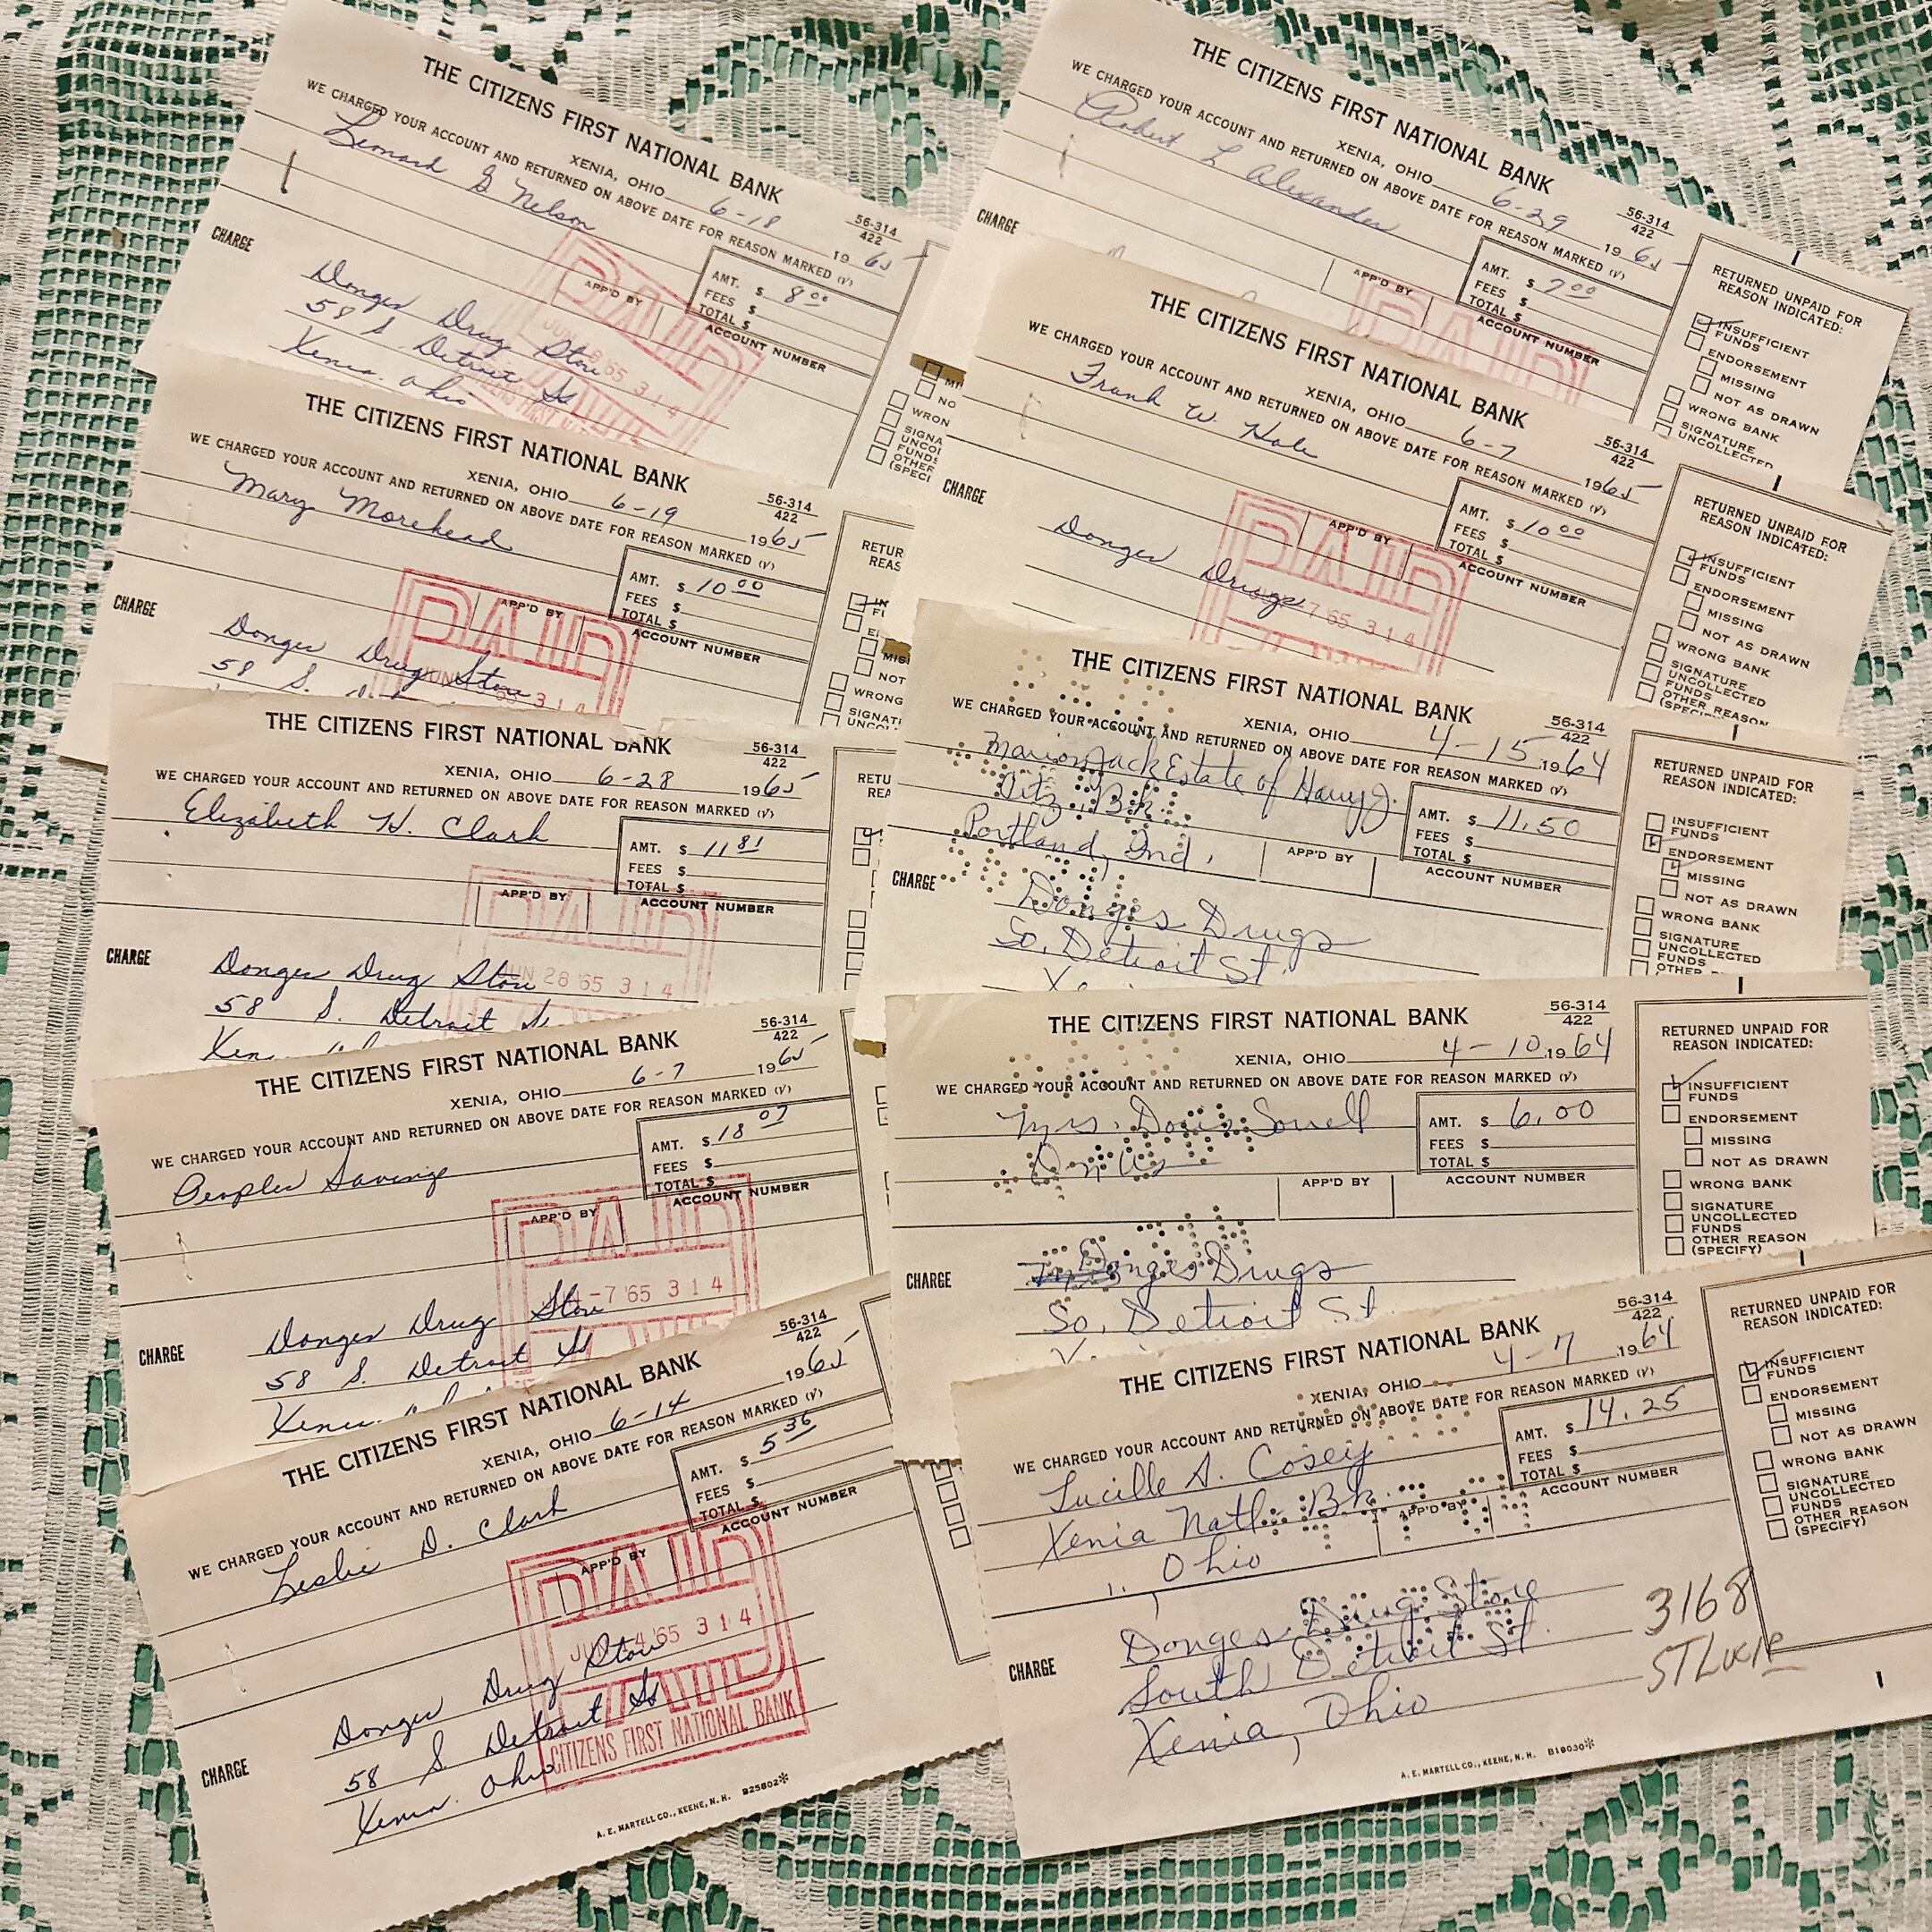 THE CITIZENS FIRST NATIONAL BANK
XENIA, OHIO 6-18 1965
56-314
422
WE CHARGED YOUR ACCOUNT AND RETURNED ON ABOVE DATE FOR REASON MARKED (√)
Leonard G Nelson
AMT. $ 8 00
FEES $
TOTAL $
APP'D BY
ACCOUNT NUMBER
CHARGE
Donges Drug Store
58 S Detroit St
Xenia. Ohio
PAID
65 3 1 4
WRON
SIGNA
UNCOL
FUNDS
OTHER
(SPECI
THE CITIZENS FIRST NATIONAL BANK
XENIA, OHIO 6-19 1965
56-314
422
WE CHARGED YOUR ACCOUNT AND RETURNED ON ABOVE DATE FOR REASON MARKED (√)
Mary Morehead
AMT. $ 10 00
FEES $
TOTAL $
APP'D BY
ACCOUNT NUMBER
CHARGE
Donges Drug Store
58 S.
PAID
65 3 1 4
RETUR
REAS
IN
FI
MIS
NOT
WRONG
SIGNAT
UNCOL
THE CITIZENS FIRST NATIONAL BANK
XENIA, OHIO 6-28 1965
56-314
422
WE CHARGED YOUR ACCOUNT AND RETURNED ON ABOVE DATE FOR REASON MARKED (√)
Elizabeth H. Clark
AMT. $ 11 81
FEES $
TOTAL $
APP'D BY
ACCOUNT NUMBER
CHARGE
Donges Drug Store
58 S. Detroit St
PAID
JUN 28 '65 3 1 4
RETU
REA
THE CITIZENS FIRST NATIONAL BANK
XENIA, OHIO 6-7 1965
56-314
422
WE CHARGED YOUR ACCOUNT AND RETURNED ON ABOVE DATE FOR REASON MARKED (√)
Peoples Savings
AMT. $ 18 07
FEES $
TOTAL $
APP'D BY
ACCOUNT NUMBER
CHARGE
Donges Drug Store
58 S. Detroit St
Xenia.
PAID
-7 '65 3 1 4
THE CITIZENS FIRST NATIONAL BANK
XENIA, OHIO 6-14 1965
56-314
422
WE CHARGED YOUR ACCOUNT AND RETURNED ON ABOVE DATE FOR REASON MARKED (√)
Leslie D. Clark
AMT. $ 5 36
FEES $
TOTAL $
APP'D BY
ACCOUNT NUMBER
CHARGE
Donges Drug Store
58 S Detroit St
Xenia. Ohio
PAID
JUN 14 '65 3 1 4
CITIZENS FIRST NATIONAL BANK
A. E. MARTELL CO., KEENE, N. H. B25802*
THE CITIZENS FIRST NATIONAL BANK
XENIA, OHIO 6-29 1965
56-314
422
WE CHARGED YOUR ACCOUNT AND RETURNED ON ABOVE DATE FOR REASON MARKED (√)
Robert L Alexander
AMT. $ 7 00
FEES $
TOTAL $
APP'D BY
ACCOUNT NUMBER
CHARGE
PAID
RETURNED UNPAID FOR
REASON INDICATED:
INSUFFICIENT
FUNDS
ENDORSEMENT
MISSING
NOT AS DRAWN
WRONG BANK
SIGNATURE
UNCOLLECTED
THE CITIZENS FIRST NATIONAL BANK
XENIA, OHIO 6-7 1965
56-314
422
WE CHARGED YOUR ACCOUNT AND RETURNED ON ABOVE DATE FOR REASON MARKED (√)
Frank W. Hole
AMT. $ 10 00
FEES $
TOTAL $
APP'D BY
ACCOUNT NUMBER
CHARGE
Donges Drugs
PAID
7 '65 3 1 4
RETURNED UNPAID FOR
REASON INDICATED:
INSUFFICIENT
FUNDS
ENDORSEMENT
MISSING
NOT AS DRAWN
WRONG BANK
SIGNATURE
UNCOLLECTED
FUNDS
OTHER REASON
(SPECIFY)
THE CITIZENS FIRST NATIONAL BANK
XENIA, OHIO 4-15 1964
56-314
422
WE CHARGED YOUR ACCOUNT AND RETURNED ON ABOVE DATE FOR REASON MARKED (√)
Marion Jack Estate of Harry J.
Bk.
Portland, Ind.
AMT. $ 11.50
FEES $
TOTAL $
APP'D BY
ACCOUNT NUMBER
CHARGE
Donges Drugs
So. Detroit St.
RETURNED UNPAID FOR
REASON INDICATED:
INSUFFICIENT
FUNDS
ENDORSEMENT
MISSING
NOT AS DRAWN
WRONG BANK
SIGNATURE
UNCOLLECTED
FUNDS
THE CITIZENS FIRST NATIONAL BANK
XENIA, OHIO 4-10 1964
56-314
422
WE CHARGED YOUR ACCOUNT AND RETURNED ON ABOVE DATE FOR REASON MARKED (√)
Mrs. Doris Sowell
On Us
AMT. $ 6.00
FEES $
TOTAL $
APP'D BY
ACCOUNT NUMBER
CHARGE
Donges Drugs
So. Detroit St
RETURNED UNPAID FOR
REASON INDICATED:
INSUFFICIENT
FUNDS
ENDORSEMENT
MISSING
NOT AS DRAWN
WRONG BANK
SIGNATURE
UNCOLLECTED
FUNDS
OTHER REASON
(SPECIFY)
THE CITIZENS FIRST NATIONAL BANK
XENIA, OHIO 4-7 1964
56-314
422
WE CHARGED YOUR ACCOUNT AND RETURNED ON ABOVE DATE FOR REASON MARKED (√)
Lucille S. Cosey
Xenia Natl. Bk.
" Ohio
AMT. $ 14.25
FEES $
TOTAL $
APP'D BY
ACCOUNT NUMBER
CHARGE
Donges Drug Store
South Detroit St.
Xenia, Ohio
3168
ST Lucie
RETURNED UNPAID FOR
REASON INDICATED:
INSUFFICIENT
FUNDS
ENDORSEMENT
MISSING
NOT AS DRAWN
WRONG BANK
SIGNATURE
UNCOLLECTED
FUNDS
OTHER REASON
(SPECIFY)
A. E. MARTELL CO., KEENE, N. H. B18030*